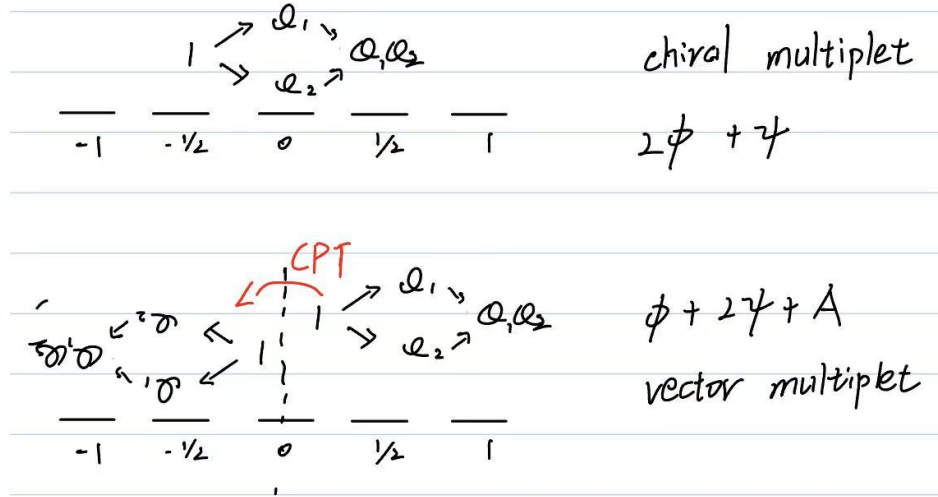 1 Q₁ Q₂ Q₁Q₂
chiral multiplet
-1 -1/2 0 1/2 1
2φ + ψ
CPT
1 Q₁ Q₂ Q₁Q₂
1 Q₂ Q₁ Q₁Q₂
φ + 2ψ + A
vector multiplet
-1 -1/2 0 1/2 1